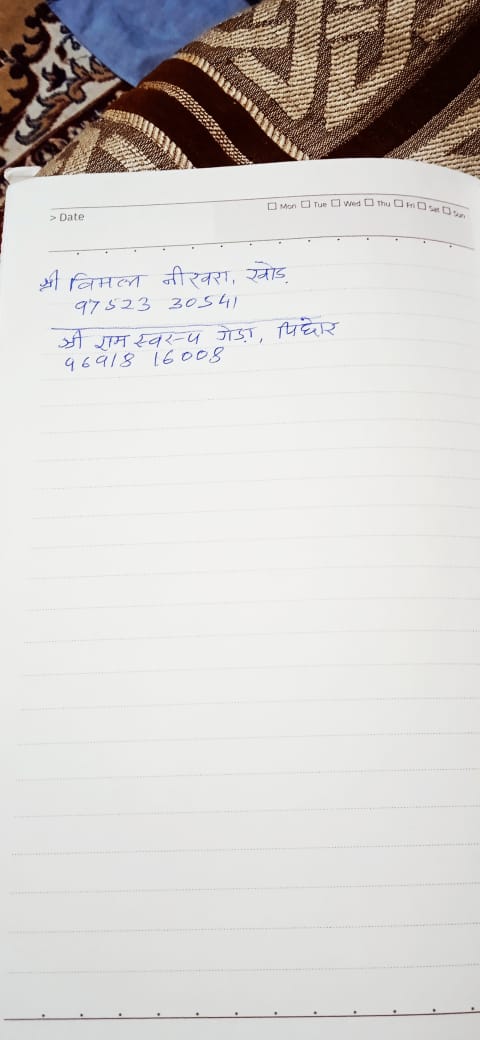 > Date
☐ Mon ☐ Tue ☐ Wed ☐ Thu ☐ Fri ☐ Sat ☐ Sun
श्री विमल नीखरा, खोड़
97523 30541
श्री राम स्वरूप गेड़ा, पिछोर
96918 16008